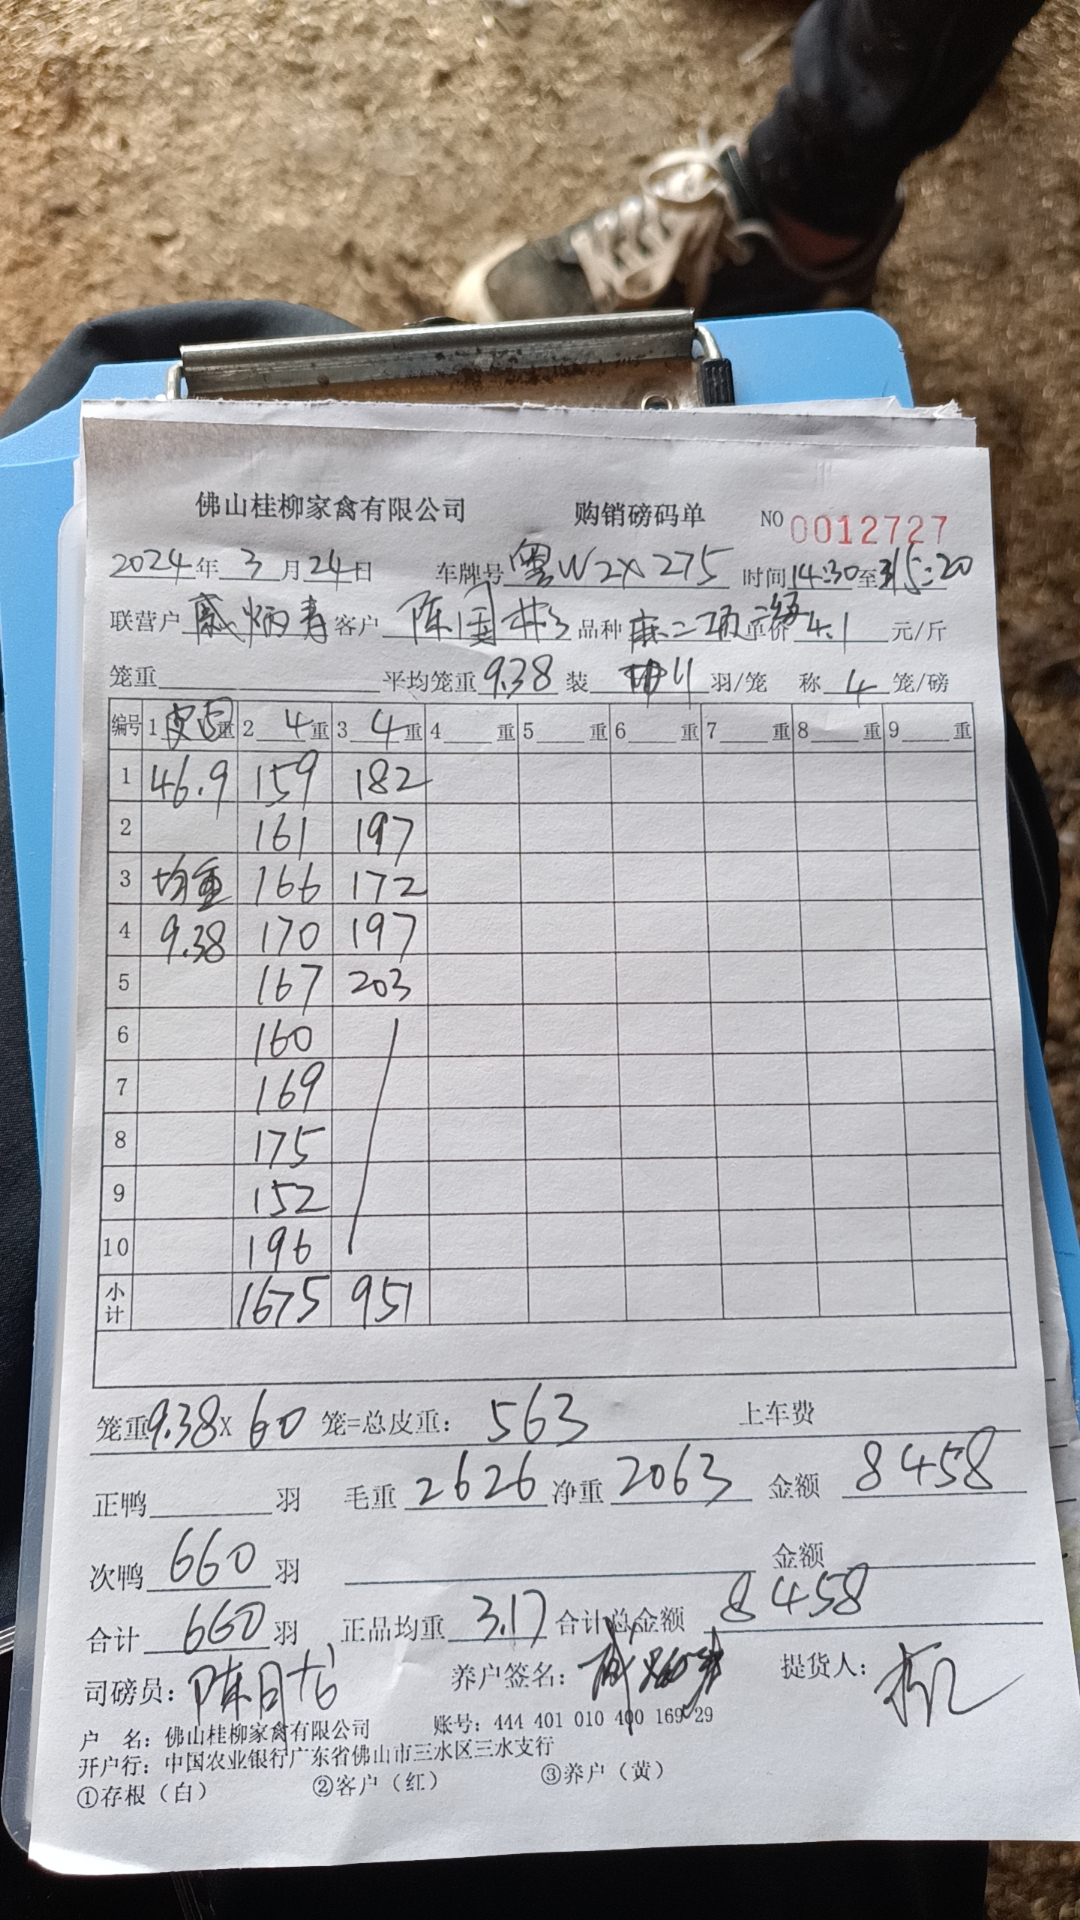 佛山桂柳家禽有限公司 购销磅码单 NO 0012727
2024年 3 月 24 日 车牌号 粤W2X275 时间 14:30 至 15:20
联营户 戚炳青 客户 陈国彬 品种 麻二项二级 单价 4.1 元/斤
笼重 平均笼重 9.38 装 11 羽/笼 称 4 笼/磅
编号 1 皮占重 2 4 重 3 4 重 4 重 5 重 6 重 7 重 8 重 9 重
1 46.9 159 182
2 161 197
3 均重 166 172
4 9.38 170 197
5 167 203
6 160
7 169
8 175
9 152
10 196
小计 1675 951
笼重 9.38 X 60 笼=总皮重: 563 上车费
正鸭 羽 毛重 2626 净重 2063 金额 8458
次鸭 660 羽 金额
合计 660 羽 正品均重 3.17 合计总金额 8458
司磅员: 养户签名: 提货人:
户 名: 佛山桂柳家禽有限公司 账号: 444 401 010 400 169 29
开户行: 中国农业银行广东省佛山市三水区三水支行
①存根（白） ②客户（红） ③养户（黄）